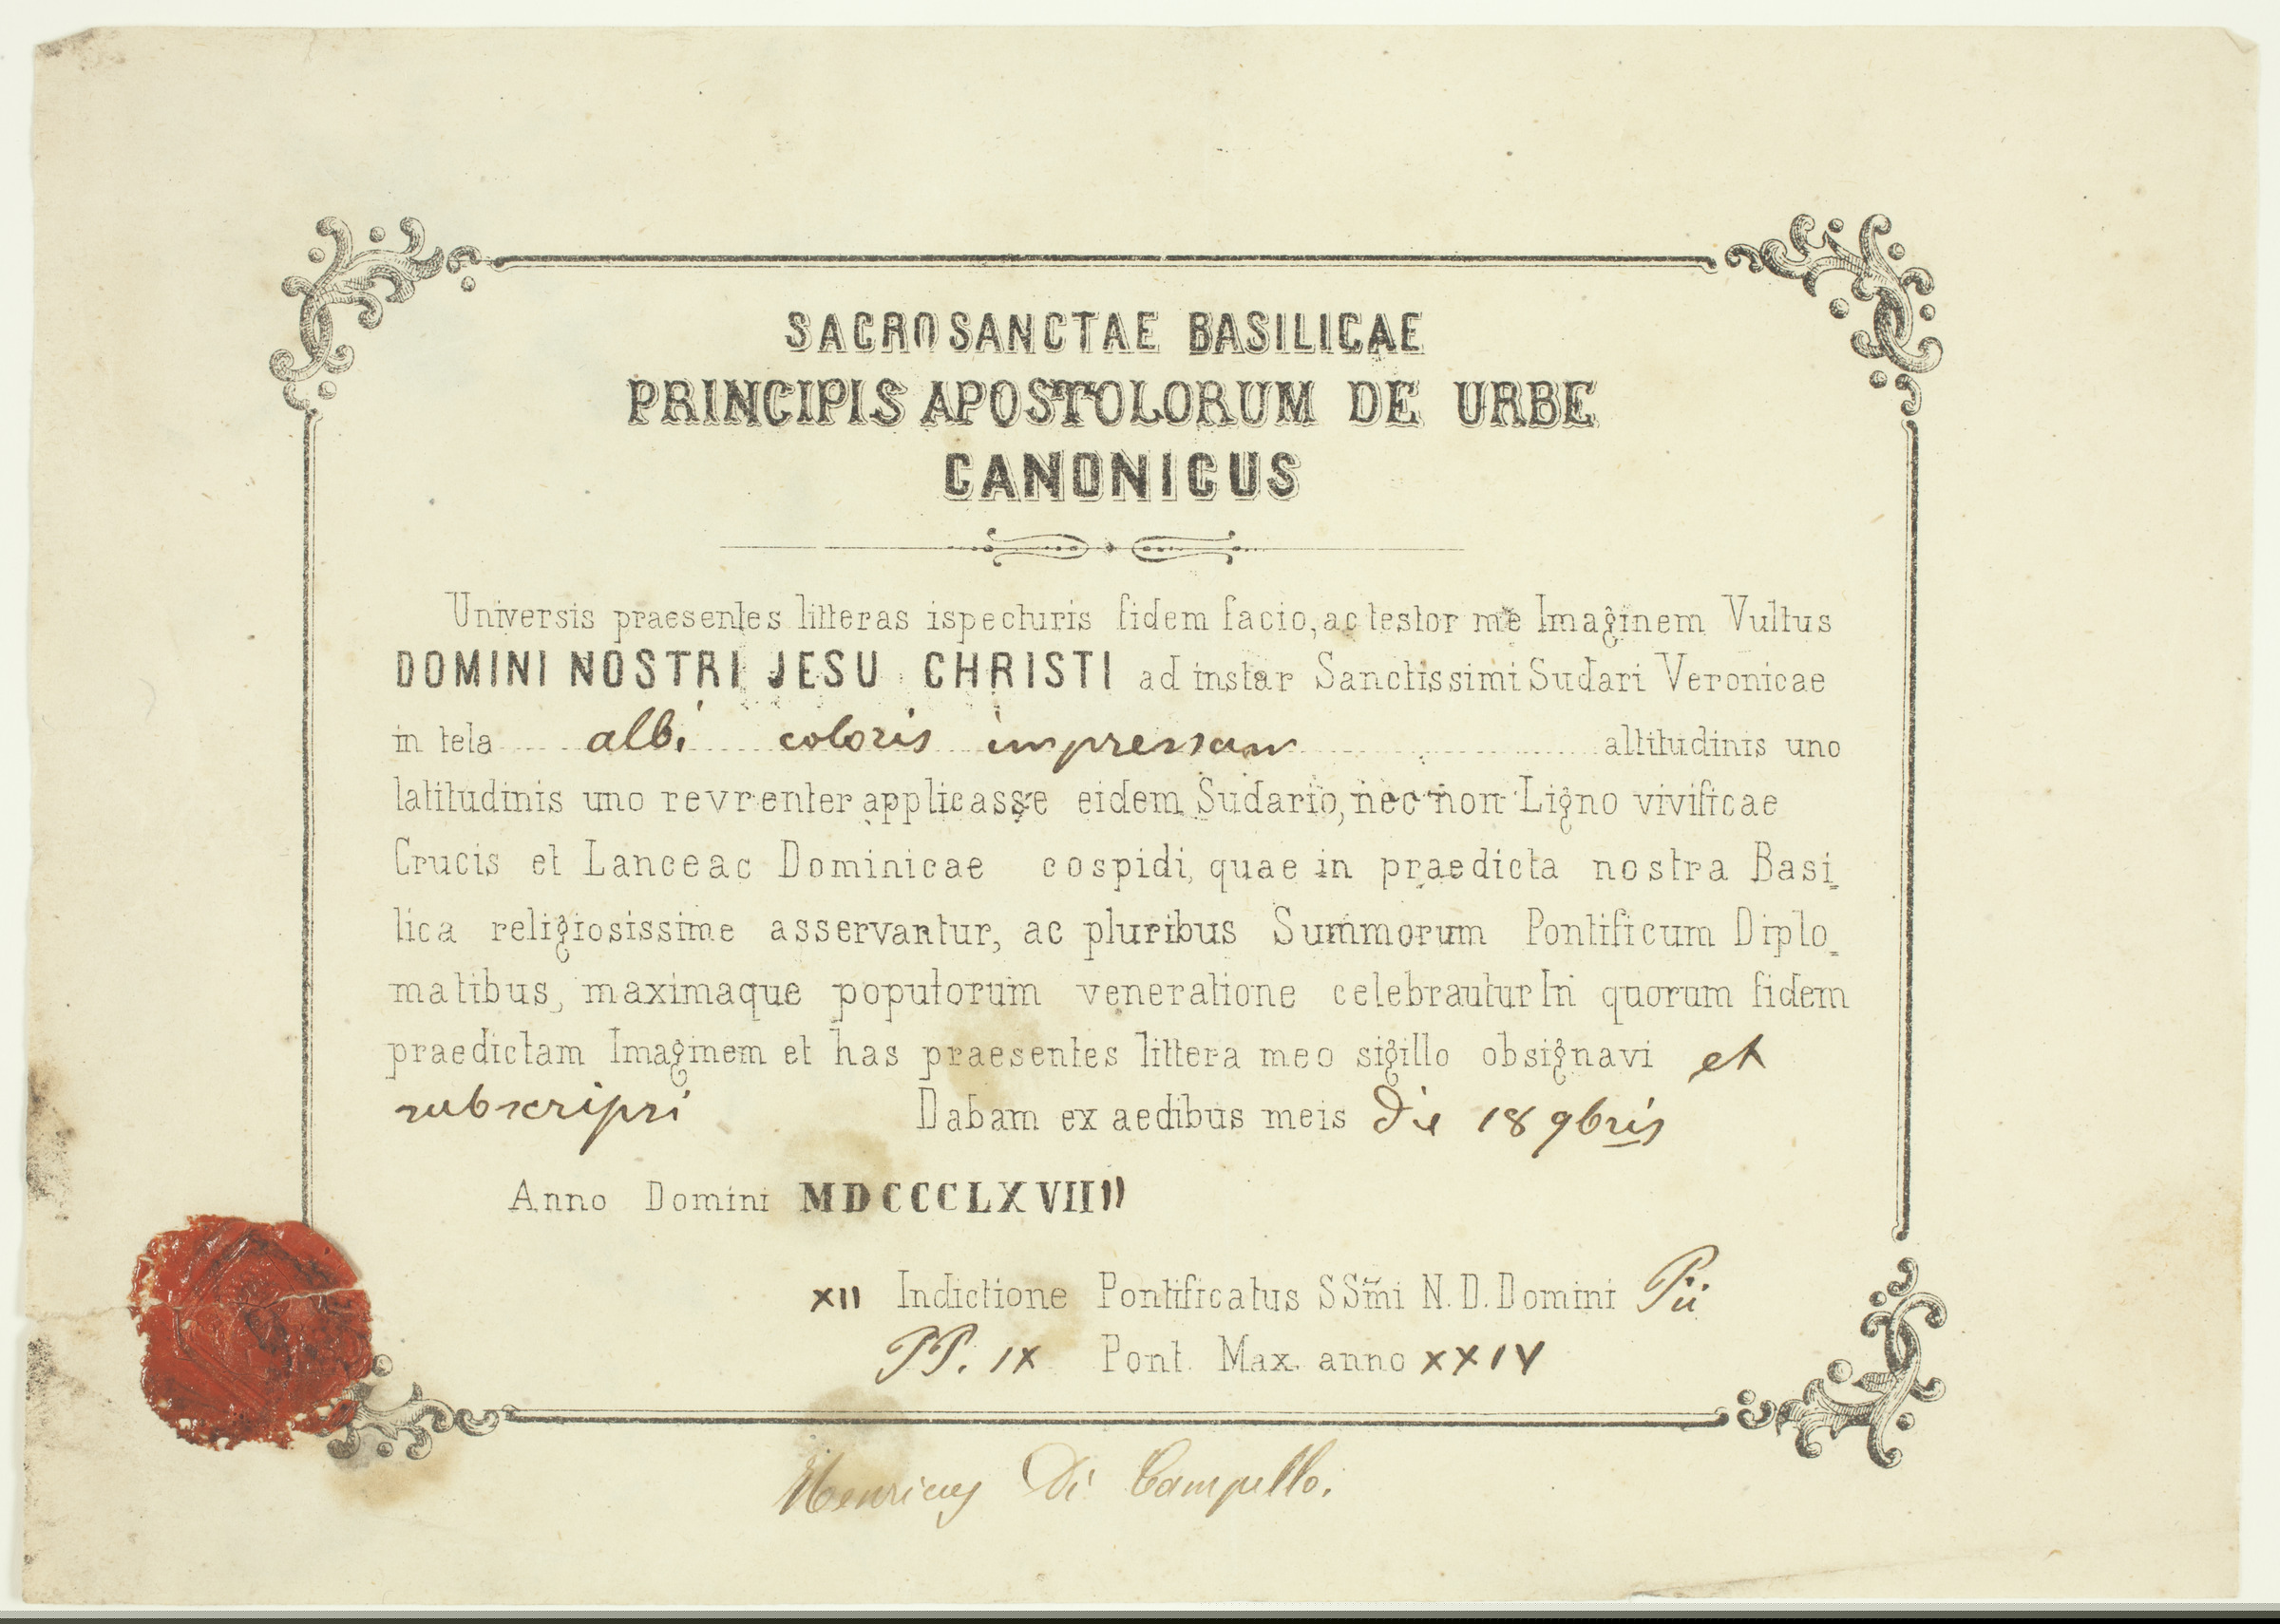 SACROSANCTAE BASILICAE
PRINCIPIS APOSTOLORUM DE URBE
CANONICUS
Universis praesentes litteras ispecturis fidem facio, ac testor me Imaginem Vultus
DOMINI NOSTRI JESU CHRISTI ad instar Sanctissimi Sudari Veronicae
in tela albi coloris impressam altitudinis uno
latitudinis uno revrenter applicasse eidem Sudario, nec non Ligno vivificae
Crucis et Lanceae Dominicae cospidi, quae in praedicta nostra Basi-
lica religiosissime asservantur, ac pluribus Summorum Pontificum Diplo-
matibus, maximaque populorum veneratione celebrautur In quorum fidem
praedictam Imaginem et has praesentes littera meo sigillo obsignavi et
subscripsi Dabam ex aedibus meis die 18 9bris
Anno Domini MDCCCLXVIIII
XII Indictione Pontificatus SSm̃i N. D. Domini Pii
PP. IX Pont. Max. anno XXIV
Henricus Di Campello.